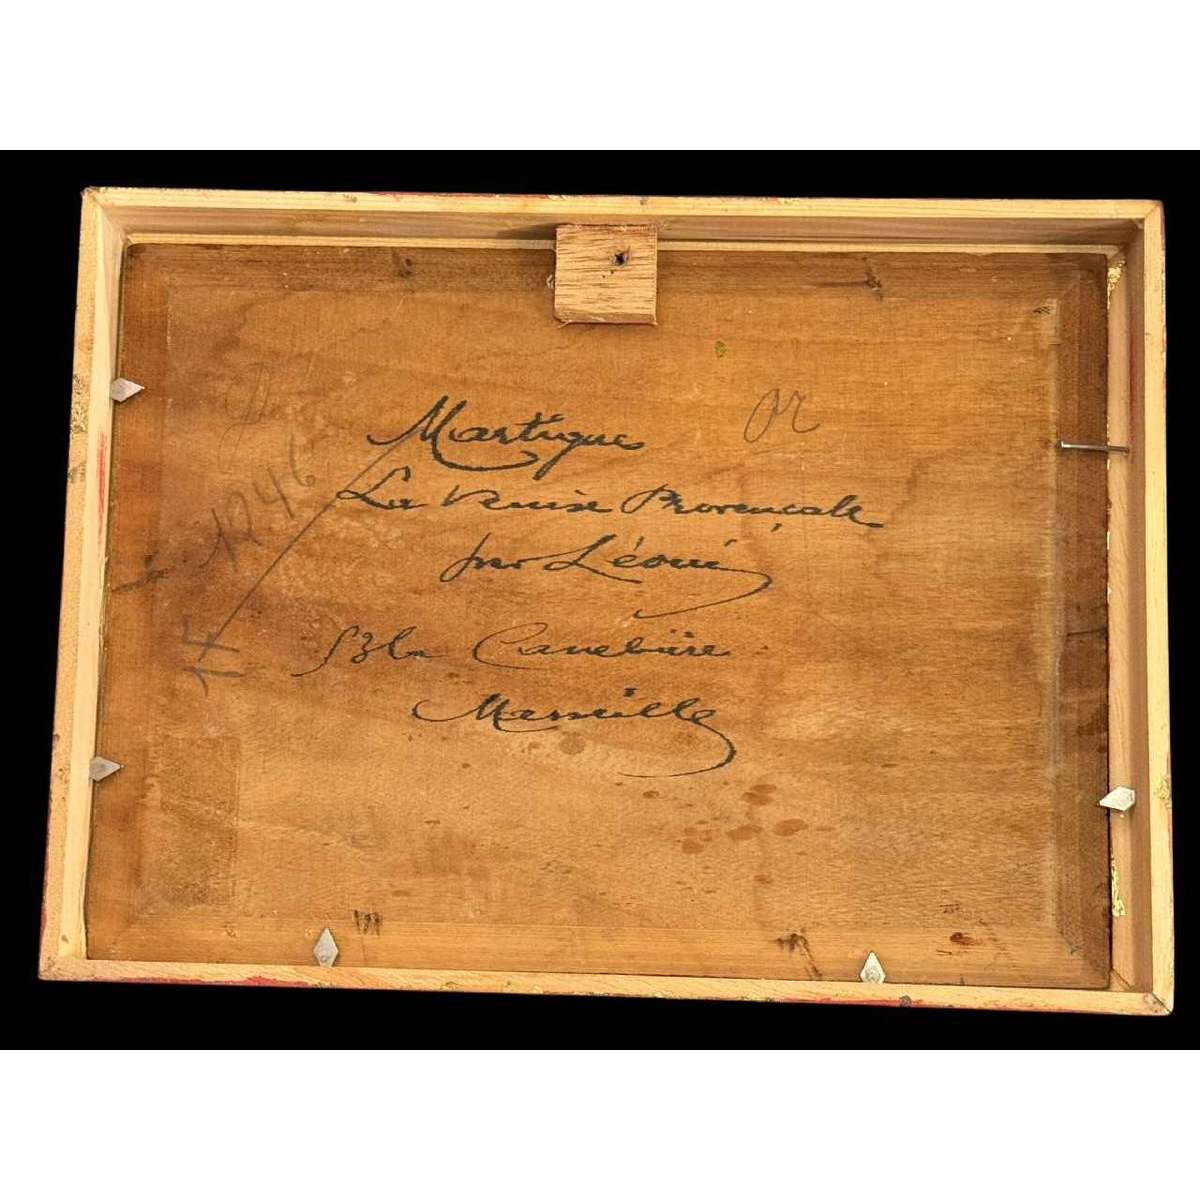 Martigues
La Venise Provençale
par Léoni
53 La Canebière
Marseille
or
1246